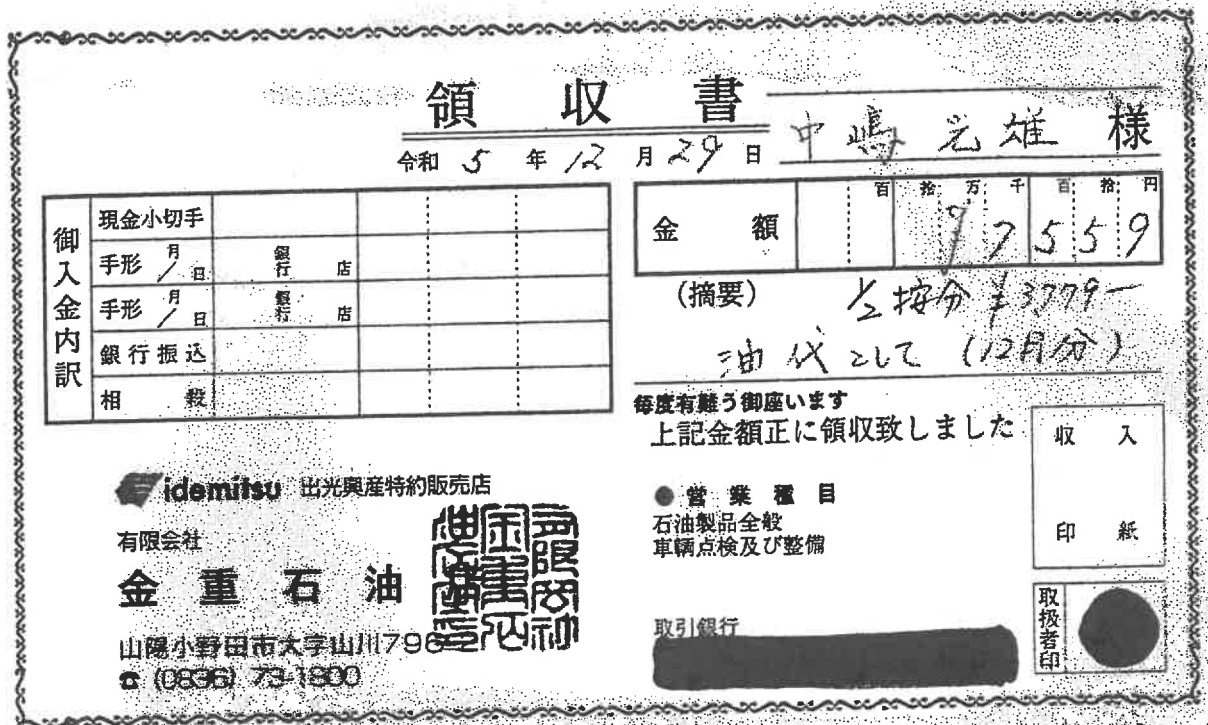 領収書
中嶋光雄 様
令和 5 年 12 月 29 日
御入金内訳
現金小切手
手形 月/日 銀行 店
手形 月/日 銀行 店
銀行振込
相殺
金額 百 拾 万 千 百 拾 円
¥7559
(摘要) 1/2按分 ¥3779-
油代として (12月分)
毎度有難う御座います
上記金額正に領収致しました
収入
印紙
idemitsu 出光興産特約販売店
有限会社
金重石油
山陽小野田市大字山川796-2
☎ (0836) 73-1800
● 営業種目
石油製品全般
車輌点検及び整備
取引銀行
取扱者印